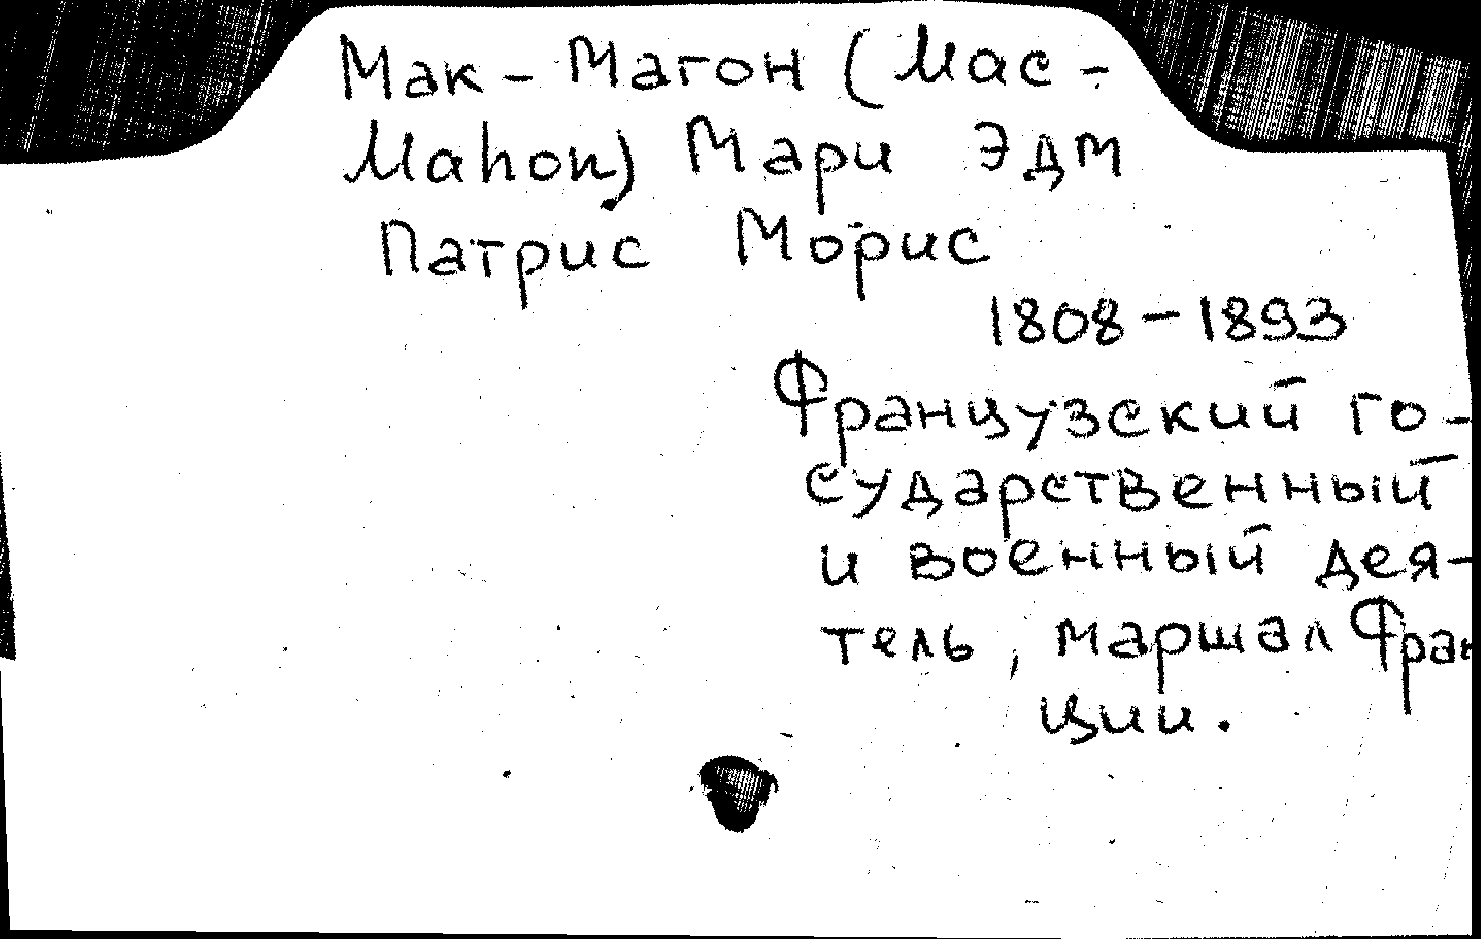 Мак - Магон (Mac -
Mahon) Мари Эдм
Патрис Морис
1808 - 1893
Французский го-
сударственный
и военный дея-
тель, маршал Фран
ции.